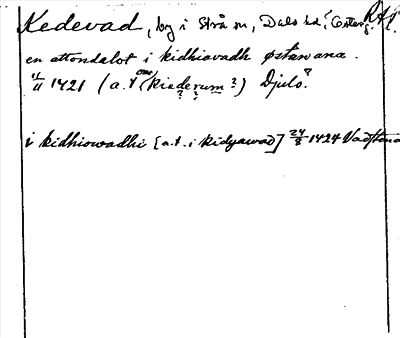 Kedevad, by i Strå sn, Dals hd, Österg. RAp.
en attondalot i kidhiavadh østanana.
11/11 1421 (a.t. (kiaderum?) Djuls.?
i kidhiowadhi [a.t. i kidyawad] 24/8 1424 Vadstena